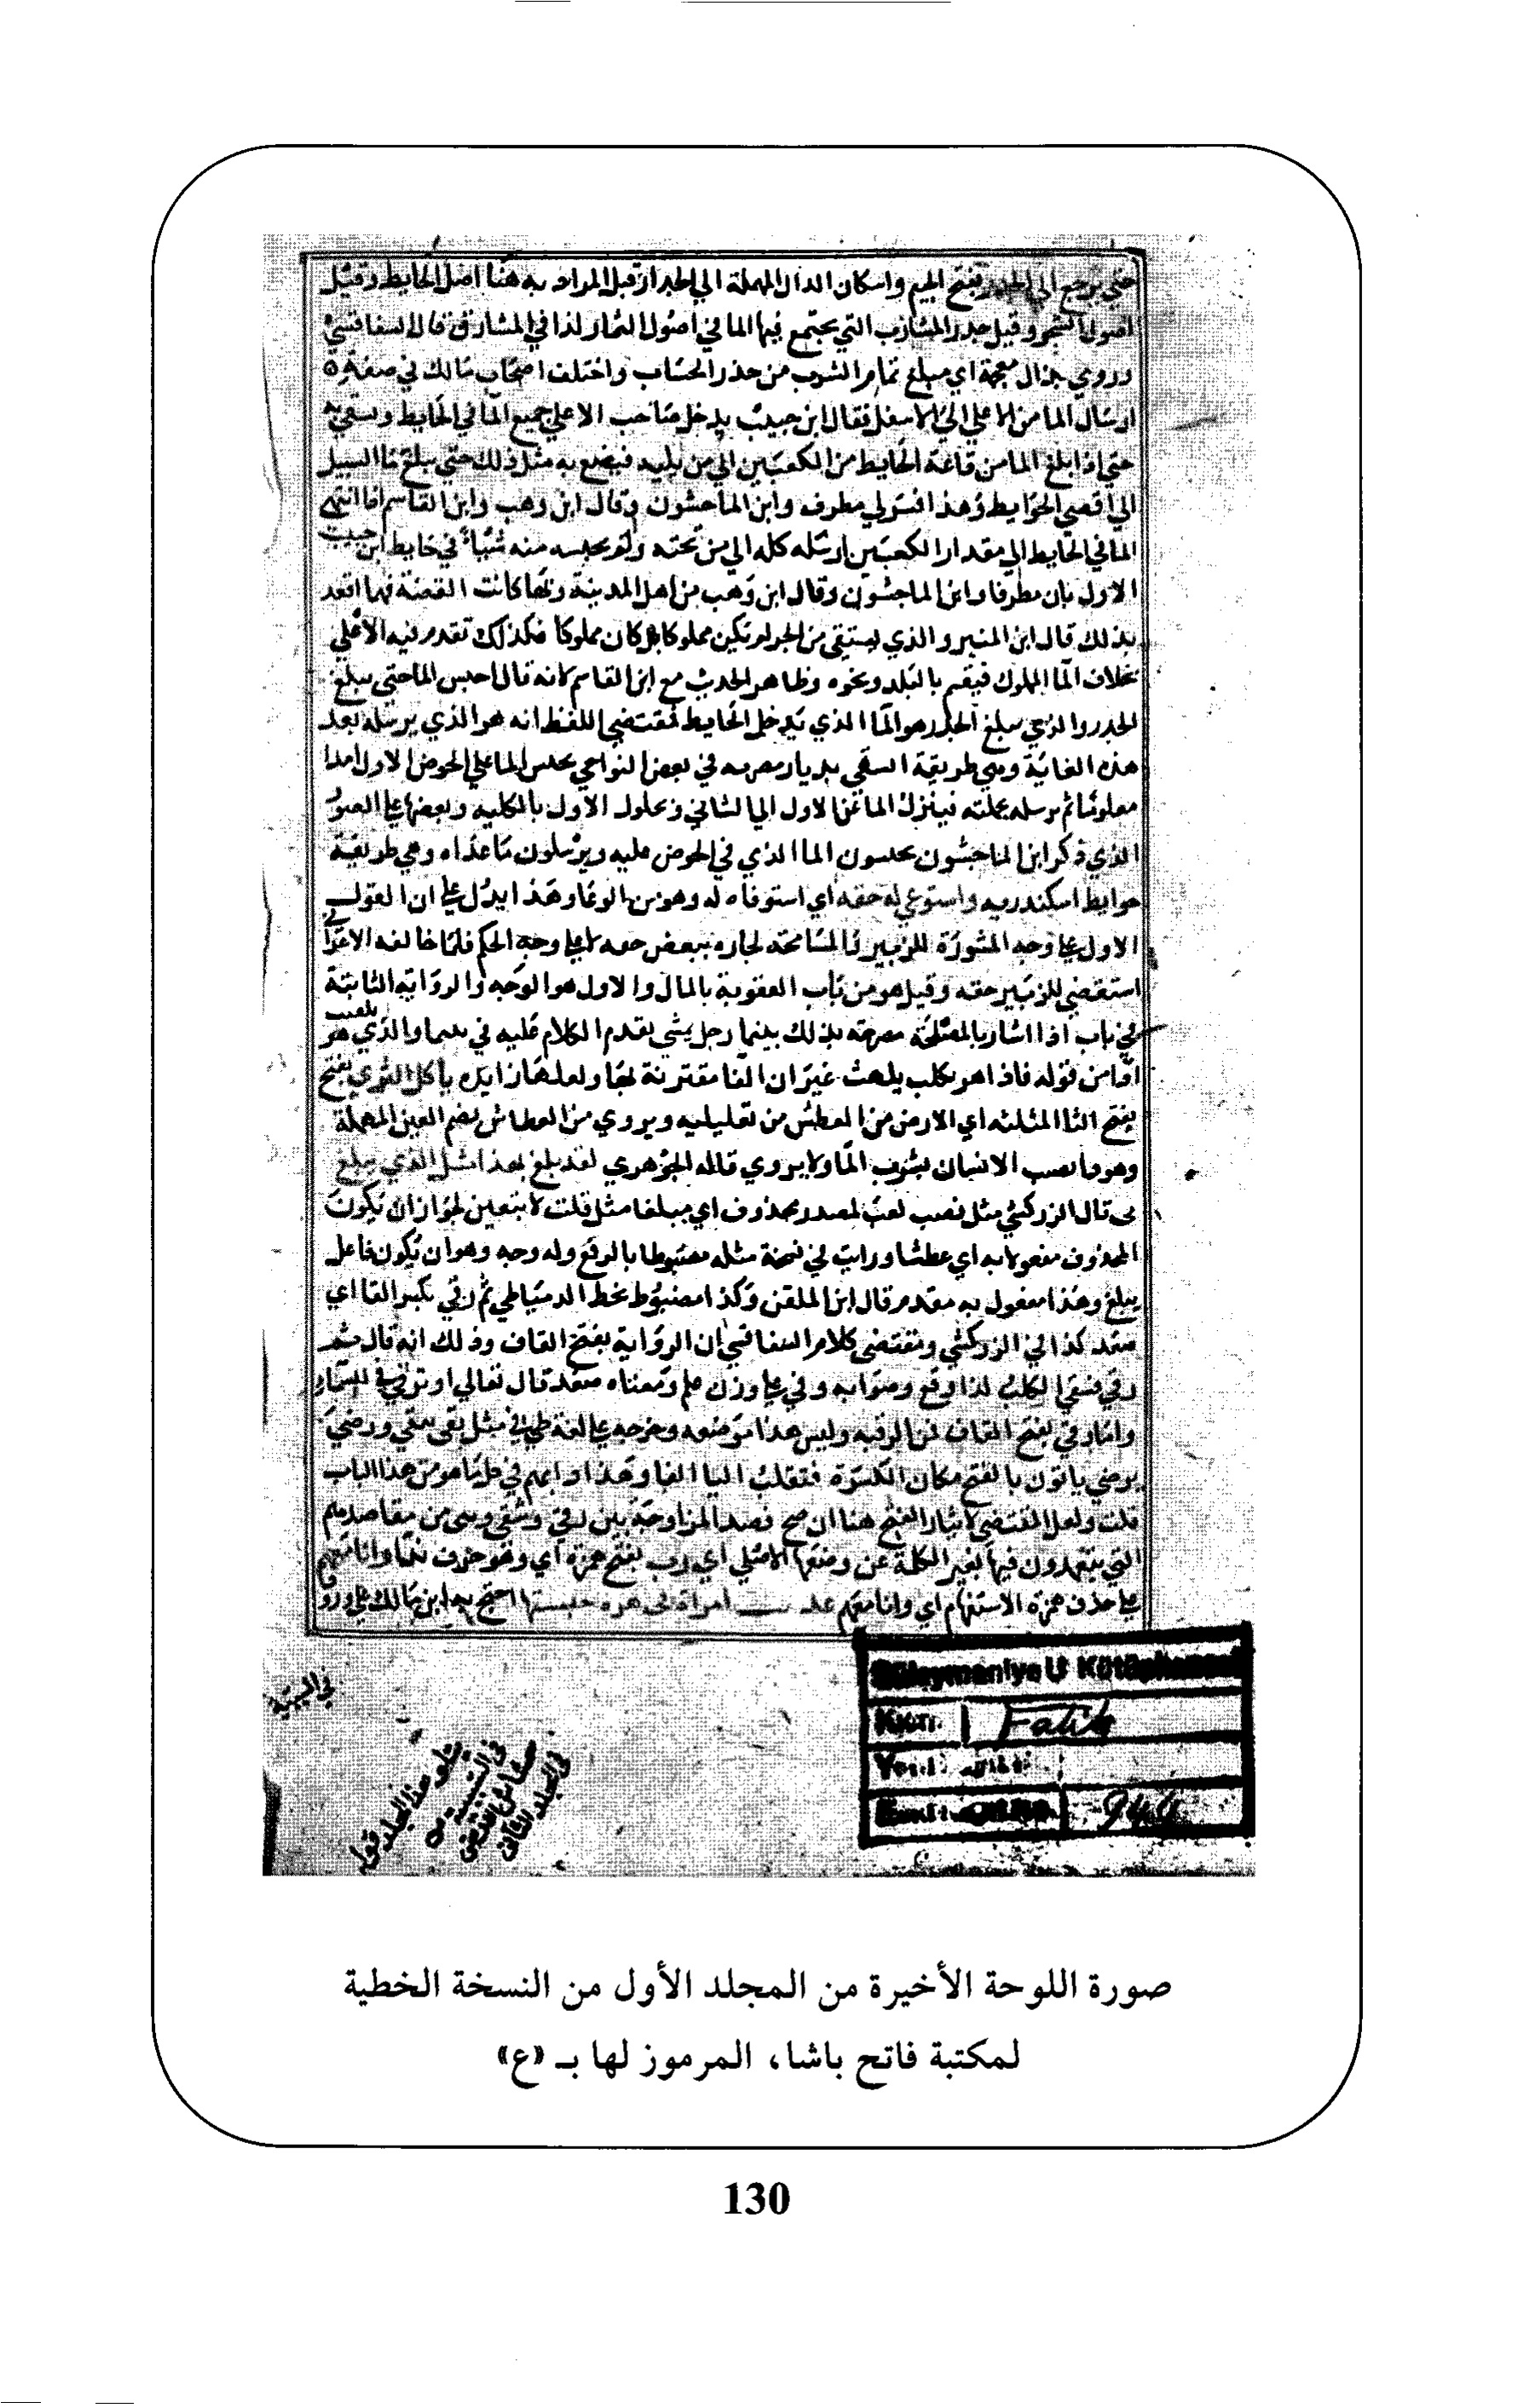 حتي يرجع الي الجدر بفتح الجيم واسكان الدال المهملة اي الجدار قبل المراد به هنا اصل الحايط وقيل
اصول الشجر وقيل جدر المشارب التي يجتمع فيها الما في اصول الثمار كذا في المشارق قال السفاقسي
وروي بذال معجمة اي مبلغ تمام الشرب من جذر الحساب واختلف اصحاب مالك في صفة
ارسال الما من الاعلي الي الاسفل فقال ابن حبيب يدخل صاحب الاعلي جميع الما في الحايط ويسقي به
حتي اذا بلغ الما من قاعة الحايط من الكعبين الي من يليه فيصنع به مثل ذلك حتي يبلغ ما السيل
الي اقصي الحوايط وهذا افسره لي مطرف وابن الماجشون وقال ابن وهب وابن القاسم اذا انتهي
الما في الحايط الي مقدار الكعبين ارسله كله الي من تحته ولم يحبس منه شيا في حايط ابن حبيب
الاول بان مطرفا وابن الماجشون وقال ابن وهب من اهل المدينة وبها كانت القصة فهما اقعد
بذلك قال ابن المنير والذي يستقي من الجر لم يكن مملوكا ولو كان مملوكا فكذلك تقدم فيه الاعلي
بخلاف الما المملوك فيقسم بالبلد ونحوه وظاهر الحديث مع ابن القاسم لانه قال احبس الما حتي يبلغ
الجدر والذي يبلغ الجدر هو الما الذي يدخل الحايط فمقتضي اللفظ انه هو الذي يرسله بعد
هذه الغاية وهي طريقة السقي بديار مصر في بعض النواحي يحبس الما علي الحوض الاول امدا
معلوما ثم يرسله بجملته فينزل الما عن الاول الي الثاني ويخلو الاول بالكلية وبعضها علي النحو
الذي ذكر ابن الماجشون يحبسون الما الذي في الحوض عليه ويرسلون ما عداه وهي طريقة
حوايط اسكندرية واستوعي له حقه اي استوفاه له وهو من الوعا وهذا يدل علي ان القول
الاول علي وجه المشورة للزبير بالمسامحة لجاره ببعض حقه لا علي وجه الحكم فلما خالفه الاعرابي
استقضي للزبير حقه وقيل هو من باب العقوبة بالمال والاول هو الوجه والرواية الثابتة
في باب اذا اشار بالمصلحة مصرحة بذلك بينما رجل يمشي تقدم الكلام عليه في بينما والذي هو
الفا من قوله فاذا هو بكلب يلهث غير ان الفا مقترنة بها ولعلها زايدة ياكل الثري بفتح
بفتح الثا المثلثة اي الارض من العطش من تعليلية ويروي من العطاش بضم العين المهملة
وهو دا يصيب الانسان يشرب الما ولا يروي قاله الجوهري لقد بلغ هذا مثل الذي يبلغ
بي قال الزركشي مثل نصب نعت لمصدر محذوف اي مبلغا مثل قلت لا يتعين لجواز ان يكون
المحذوف مفعولا به اي عطشا ورايت في نسخة مثله مضبوطا بالرفع وله وجه وهو ان يكون فاعل
يبلغ وهذا مفعول به مقدم قال ابن الملقن وكذا مضبوط بخط الدمياطي ثم رقي بكسر القاف اي
صعد كذا في الزركشي ومقتضي كلام السفاقسي ان الرواية بفتح القاف وذلك انه قال ثم
رقي فسقي الكلب كذا وقع وصوابه رقي علي وزن علم ومعناه صعد قال تعالي او ترقي في السما
واما رقي بفتح القاف فمن الرقية وليس هذا موضعه وخرجه علي لغة طيئ في مثل بقي يبقي ورضي
يرضي ياتون بالفتح مكان الكسرة فتقلب اليا الفا وهذا دابهم في كل ما هو من هذا الباب
قلت ولعل المقتضي لايثار الفتح هنا ان صح قصد المزاوجة بين رقي وسقي وهي من مقاصدهم
التي يتعمدون فيها تغيير الكلمة عن وضعها الاصلي اي رب بفتح همزة اي وهو حرف ندا وانا معهم
علي حذف همزة الاستفهام اي وانا معهم عذبت امراة في هرة حبستها احتج به ابن مالك علي ورود
في السببية
يتلو هذا المجلد قوله
في السببية
في المجلد الثاني
Süleymaniye U Kütüphanesi
Kısmı Fatih
صورة اللوحة الأخيرة من المجلد الأول من النسخة الخطية
لمكتبة فاتح باشا، المرموز لها بـ «ع»
130